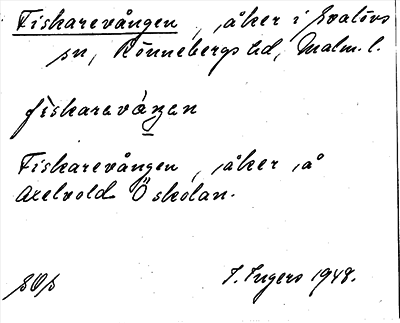 Fiskarevången, åker i Svalövs
sn, Rönnebergs hd, Malm. l.
fiskarevángen
Fiskarevången, åker på
Axelvold Ö skolan.
I. Ingers 1948.